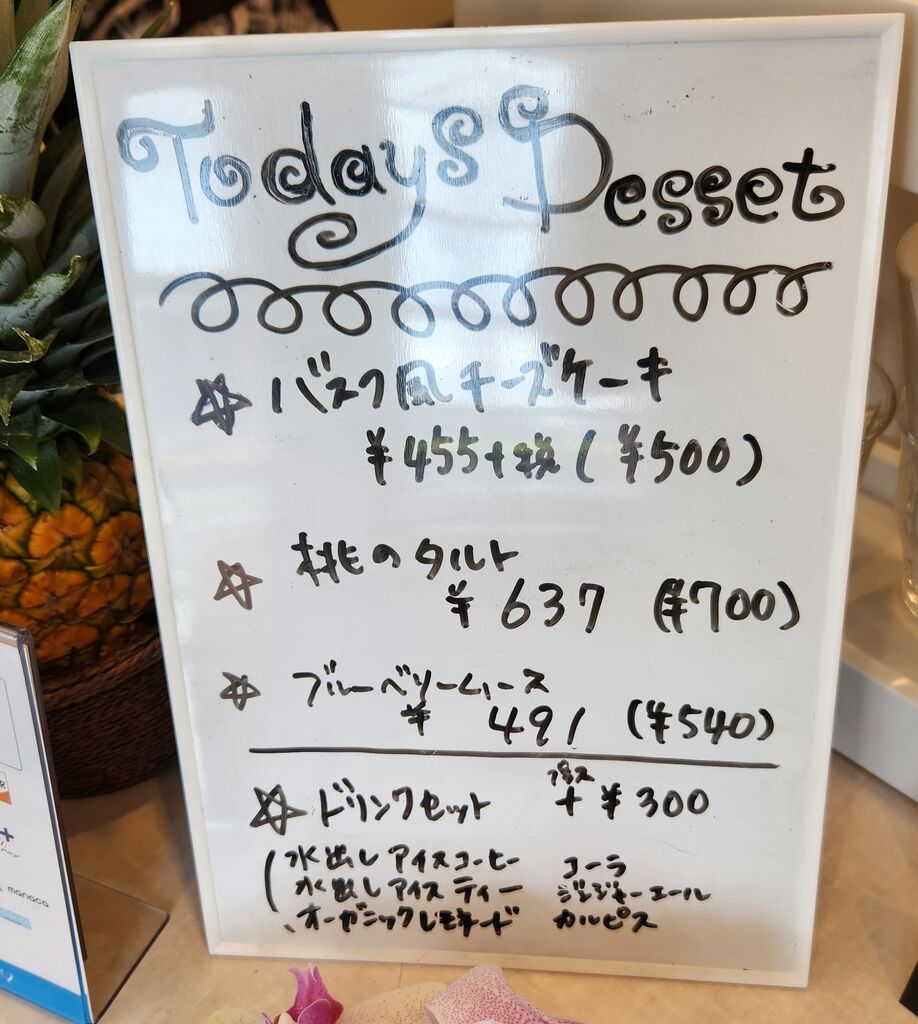 Todays Desset
バスク風チーズケーキ
¥455+税(¥500)
桃のタルト
¥637 (¥700)
ブルーベリームース
¥491 (¥540)
ドリンクセット プラス + ¥300
水出しアイスコーヒー コーラ
水出しアイスティー ジンジャーエール
オーガニックレモネード カルピス
manaca